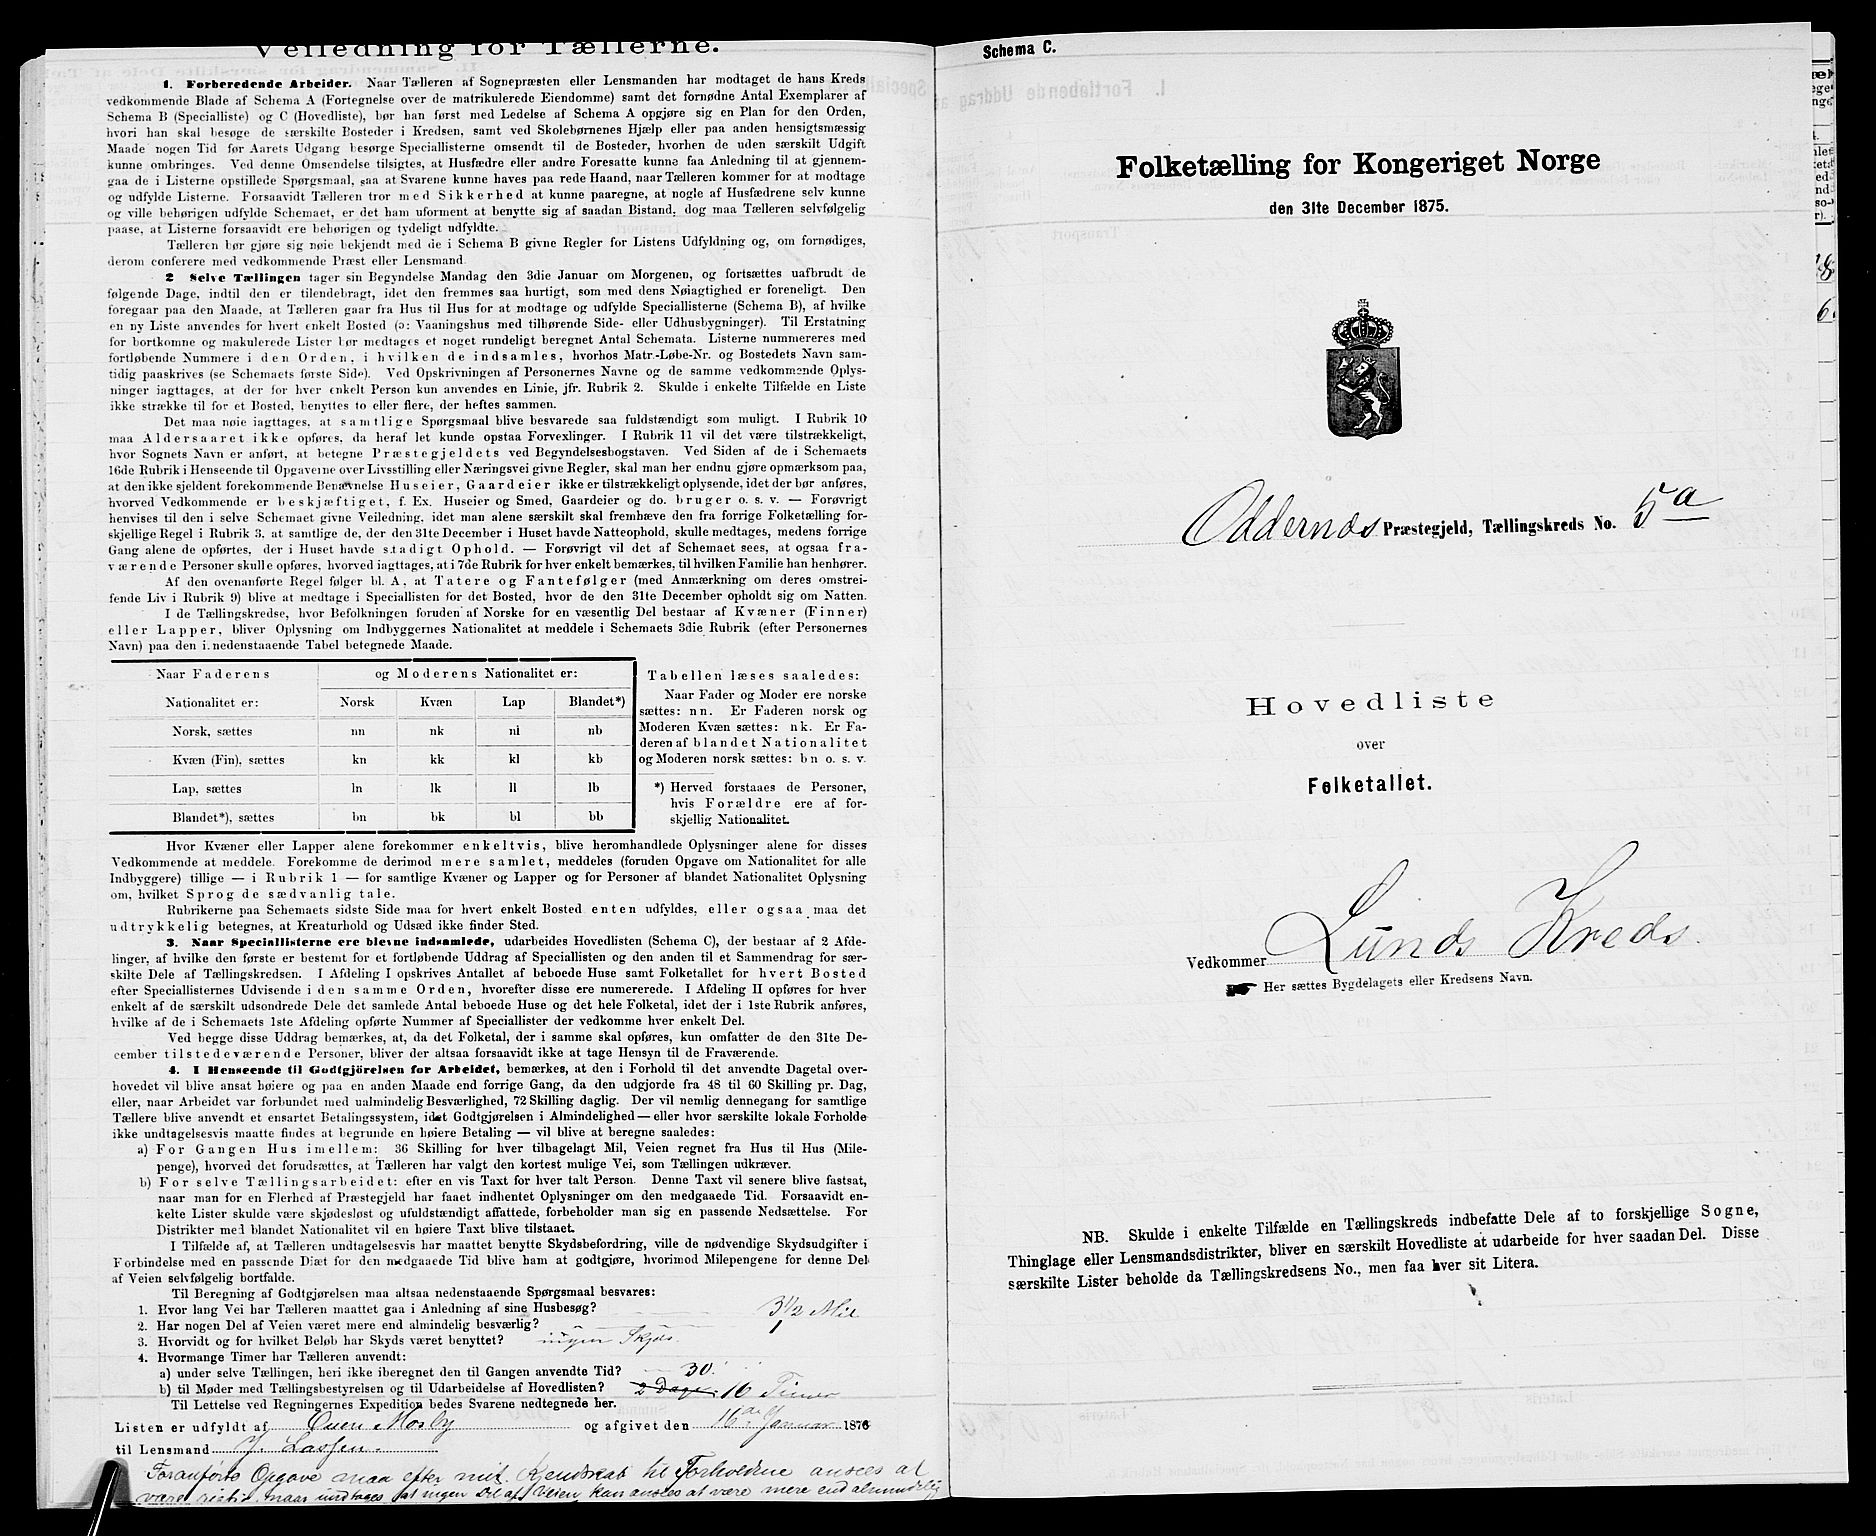 Veiledning for Tællerne.
1. Forberedende Arbeider. Naar Tælleren af Sognepræsten eller Lensmanden har modtaget de hans Kreds
vedkommende Blade af Schema A (Fortegnelse over de matrikulerede Eiendomme) samt det fornødne Antal Exemplarer af
Schema B (Specialliste) og C (Hovedliste), bør han først med Ledelse af Schema A opgjøre sig en Plan for den Orden,
hvori han skal besøge de særskilte Bosteder i Kredsen, samt ved Skolebørnenes Hjælp eller paa anden hensigtsmæssig
Maade nogen Tid før Aarets Udgang besørge Speciallisterne omsendt til de Bosteder, hvorhen de uden særskilt Udgift
kunne ombringes. Ved denne Omsendelse tilsigtes, at Husfædre eller andre Foresatte kunne faa Anledning til at gjennem-
gaa de i Listerne opstillede Spørgsmaal, saa at Svarene kunne haves paa rede Haand, naar Tælleren kommer for at modtage
og udfylde Listerne. Forsaavidt Tælleren tror med Sikkerhed at kunne paaregne, at nogle af Husfædrene selv kunne
og ville behørigen udfylde Schemaet, er det ham uforment at benytte sig af saadan Bistand, dog maa Tælleren selvfølgelig
paase, at Listerne forsaavidt ere behørigen og tydeligt udfyldte.
Tælleren bør gjøre sig nøie bekjendt med de i Schema B givne Regler for Listens Udfyldning og, om fornødiges,
derom conferere med vedkommende Præst eller Lensmand.
2 Selve Tællingen tager sin Begyndelse Mandag den 3die Januar om Morgenen, og fortsættes uafbrudt de
følgende Dage, indtil den er tilendebragt, idet den fremmes saa hurtigt, som med dens Nøiagtighed er foreneligt. Den
foregaar paa den Maade, at Tælleren gaar fra Hus til Hus for at modtage og udfylde Speciallisterne (Schema B), af hvilke
en ny Liste anvendes for hvert enkelt Bosted (ɔ: Vaaningshus med tilhørende Side- eller Udhusbygninger). Til Erstatning
for bortkomne og makulerede Lister bør medtages et noget rundeligt beregnet Antal Schemata. Listerne nummereres med
fortløbende Nummere i den Orden, i hvilken de indsamles, hvorhos Matr.-Løbe-Nr. og Bostedets Navn sam-
tidig paaskrives (se Schemaets første Side). Ved Opskrivningen af Personernes Navne og de samme vedkommende Oplys-
ninger iagttages, at der for hver enkelt Person kun anvendes en Linie, jfr. Rubrik 2. Skulde i enkelte Tilfælde en Liste
ikke strække til for et Bosted, benyttes to eller flere, der heftes sammen.
Det maa nøie iagttages, at samtlige Spørgsmaal blive besvarede saa fuldstændigt som muligt. I Rubrik 10
maa Aldersaaret ikke opføres, da heraf let kunde opstaa Forvexlinger. I Rubrik 11 vil det være tilstrækkeligt,
hvor Sognets Navn er anført, at betegne Præstegjeldets ved Begyndelsesbogstaven. Ved Siden af de i Schemaets
16de Rubrik i Henseende til Opgaverne over Livsstilling eller Næringsvei givne Regler, skal man her endnu gjøre opmærksom paa,
at den ikke sjeldent forekommende Benævnelse Huseier, Gaardeier ikke er tilstrækkeligt oplysende, idet der bør anføres,
hvorved Vedkommende er beskjæftiget, f. Ex. Huseier og Smed, Gaardeier og do. bruger o. s. v. — Forøvrigt
henvises til den i selve Schemaet givne Veiledning, idet man alene særskilt skal fremhæve den fra forrige Folketælling for-
skjellige Regel i Rubrik 3, at samtlige de, der den 31te December i Huset havde Natteophold, skulle medtages, medens forrige
Gang alene de opførtes, der i Huset havde stadigt Ophold. — Forøvrigt vil det af Schemaet sees, at ogsaa fra-
værende Personer skulle opføres, hvorved iagttages, at i 7de Rubrik for hver enkelt bemærkes, til hvilken Familie han henhører.
Af den ovenanførte Regel følger bl. A, at Tatere og Fantefølger (med Anmærkning om deres omstrei-
fende Liv i Rubrik 9) blive at medtage i Speciallisten for det Bosted, hvor de den 31te December opholdt sig om Natten.
I de Tællingskredse, hvor Befolkningen foruden af Norske for en væsentlig Del bestaar af Kvæner (Finner)
eller Lapper, bliver Oplysning om Indbyggernes Nationalitet at meddele i Schemaets 3die Rubrik (efter Personernes
Navn) paa den i nedenstaaende Tabel betegnede Maade.
Naar Faderens og Moderens Nationalitet er:
Nationalitet er: Norsk Kvæn Lap Blandet*)
Norsk, sættes nn nk nl nb
Kvæn (Fin), sættes kn kk kl kb
Lap, sættes ln lk ll lb
Blandet*), sættes bn bk bl bb
Tabellen læses saaledes:
Naar Fader og Moder ere norske
sættes: nn. Er Faderen norsk og
Moderen Kvæn sættes: nk. Er Fa-
deren af blandet Nationalitet
og Moderen norsk sættes: bn o. s. v.
*) Herved forstaaes de Personer,
hvis Forældre ere af for-
skjellig Nationalitet.
Hvor Kvæner eller Lapper alene forekommer enkeltvis, blive heromhandlede Oplysninger alene for disses
Vedkommende at meddele. Forekomme de derimod mere samlet, meddeles (foruden Opgave om Nationalitet for alle
Indbyggere) tillige — i Rubrik 1 — for samtlige Kvæner og Lapper og for Personer af blandet Nationalitet Oplysning
om, hvilket Sprog de sædvanlig tale.
Rubrikerne paa Schemaets sidste Side maa for hvert enkelt Bosted enten udfyldes, eller ogsaa maa det
udtrykkelig betegnes, at Kreaturhold og Udsæd ikke finder Sted.
3. Naar Speciallisterne ere blevne indsamlede, udarbeides Hovedlisten (Schema C), der bestaar af 2 Afde-
linger, af hvilke den første er bestemt for et fortløbende Uddrag af Speciallisten og den anden til et Sammendrag for sær-
skilte Dele af Tællingskredsen. I Afdeling I opskrives Antallet af beboede Huse samt Folketallet for hvert Bosted
efter Speciallisternes Udvisende i den samme Orden, hvorefter disse ere numererede. I Afdeling II opføres for hver
enkelt af de særskilt udsondrede Dele det samlede Antal beboede Huse og det hele Folketal, idet der i 1ste Rubrik anføres,
hvilke af de i Schemaets 1ste Afdeling opførte Nummer af Speciallister der vedkomme hver enkelt Del.
Ved begge disse Uddrag bemærkes, at, da det Folketal, der i samme skal opføres, kun omfatter de den 31te De-
cember tilstedeværende Personer, bliver der altsaa forsaavidt ikke at tage Hensyn til de Fraværende.
4. I Henseende til Godtgjörelsen for Arbeidet, bemærkes, at den i Forhold til det anvendte Dagetal over-
hovedet vil blive ansat høiere og paa en anden Maade end forrige Gang, da den udgjorde fra 48 til 60 Skilling pr. Dag,
eller, naar Arbeidet var forbundet med ualmindelig Besværlighed, 72 Skilling daglig. Der vil nemlig dennegang for samtlige
Tællere blive anvendt et ensartet Betalingssystem, idet Godtgjørelsen i Almindelighed — eller hvor særskilte lokale Forholde
ikke undtagelsesvis maatte findes at begrunde en høiere Betaling — vil blive at beregne saaledes:
a) For Gangen Hus imellem: 36 Skilling for hver tilbagelagt Mil, Veien regnet fra Hus til Hus (Mile-
penge), hvorved det forudsættes, at Tælleren har valgt den kortest mulige Vei, som Tællingen udkræver.
b) For selve Tællingsarbeidet: efter en vis Taxt for hver talt Person. Denne Taxt vil senere blive fastsat,
naar man for en Flerhed af Præstegjeld har faaet indhentet Oplysninger om den medgaaede Tid. Forsaavidt en-
kelte Lister skulde være skjødesløst og ufuldstændigt affattede, forbeholder man sig en passende Nedsættelse. For
Distrikter med blandet Nationalitet vil en høiere Taxt blive tilstaaet.
I Tilfælde af, at Tælleren undtagelsesvis har maattet benytte Skydsbefordring, ville de nødvendige Skydsudgifter i
Forbindelse med en passende Diæt for den medgaaede Tid blive ham at godtgjøre, hvorimod Milepengene for denne Del
af Veien selvfølgelig bortfalde.
Til Beregning af Godtgjørelsen maa altsaa nedenstaaende Spørgsmaal besvares:
1. Hvor lang Vei har Tælleren maattet gaa i Anledning af sine Husbesøg? 3 1/2 Mil
2. Har nogen Del af Veien været mere end almindelig besværlig?
3. Hvorvidt og for hvilket Beløb har Skyds været benyttet? ingen Skyds.
4. Hvormange Timer har Tælleren anvendt:
a) under selve Tællingen, heri ikke iberegnet den til Gangen anvendte Tid? 30.
b) til Møder med Tællingsbestyrelsen og til Udarbeidelse af Hovedlisten? 2 Dage 16 Timer
Til Lettelse ved Regningernes Expedition bedes Svarene nedtegnede her.
Listen er udfyldt af Ouen Mosby og afgivet den 16de Januar 1876
til Lensmand J. Lassen.
Foranførte Opgave maa efter mit Kjendskab til Forholdene ansees at
være rigtig, naar undtages at ingen Del af Veien kan ansees at være mere end almindelig
Schema C.
Folketælling for Kongeriget Norge
den 31te December 1875.
Oddernes Præstegjeld, Tællingskreds No. 5a
Hovedliste
over
Folketallet.
Vedkommer Lunds Kreds.
Her sættes Bygdelagets eller Kredsens Navn.
NB. Skulde i enkelte Tilfælde en Tællingskreds indbefatte Dele af to forskjellige Sogne,
Thinglage eller Lensmandsdistrikter, bliver en særskilt Hovedliste at udarbeide for hver saadan Del. Disse
særskilte Lister beholde da Tællingskredsens No., men faa hver sit Litera.